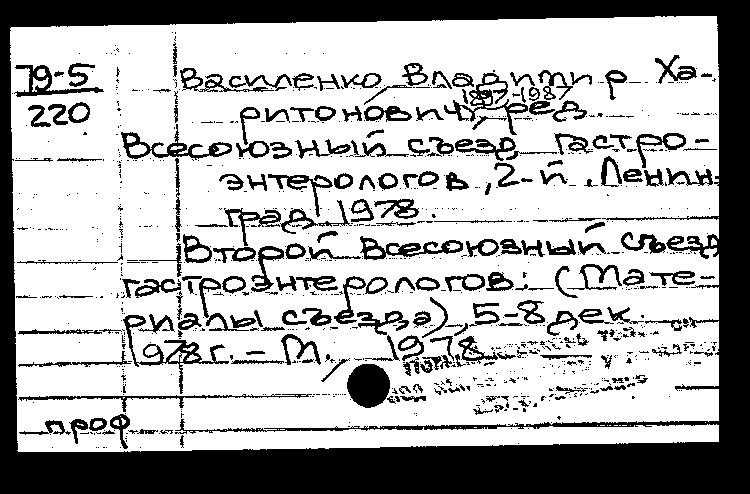 79-5
220
Василенко Владимир Ха-
1897-1987
ритонович, ред.
Всесоюзный съезд гастро-
энтерологов, 2-й. Ленин-
град. 1978.
Второй Всесоюзный съезд
гастроэнтерологов: (Мате-
риалы съезда), 5-8 дек.
1978 г. - М., 1978
проф